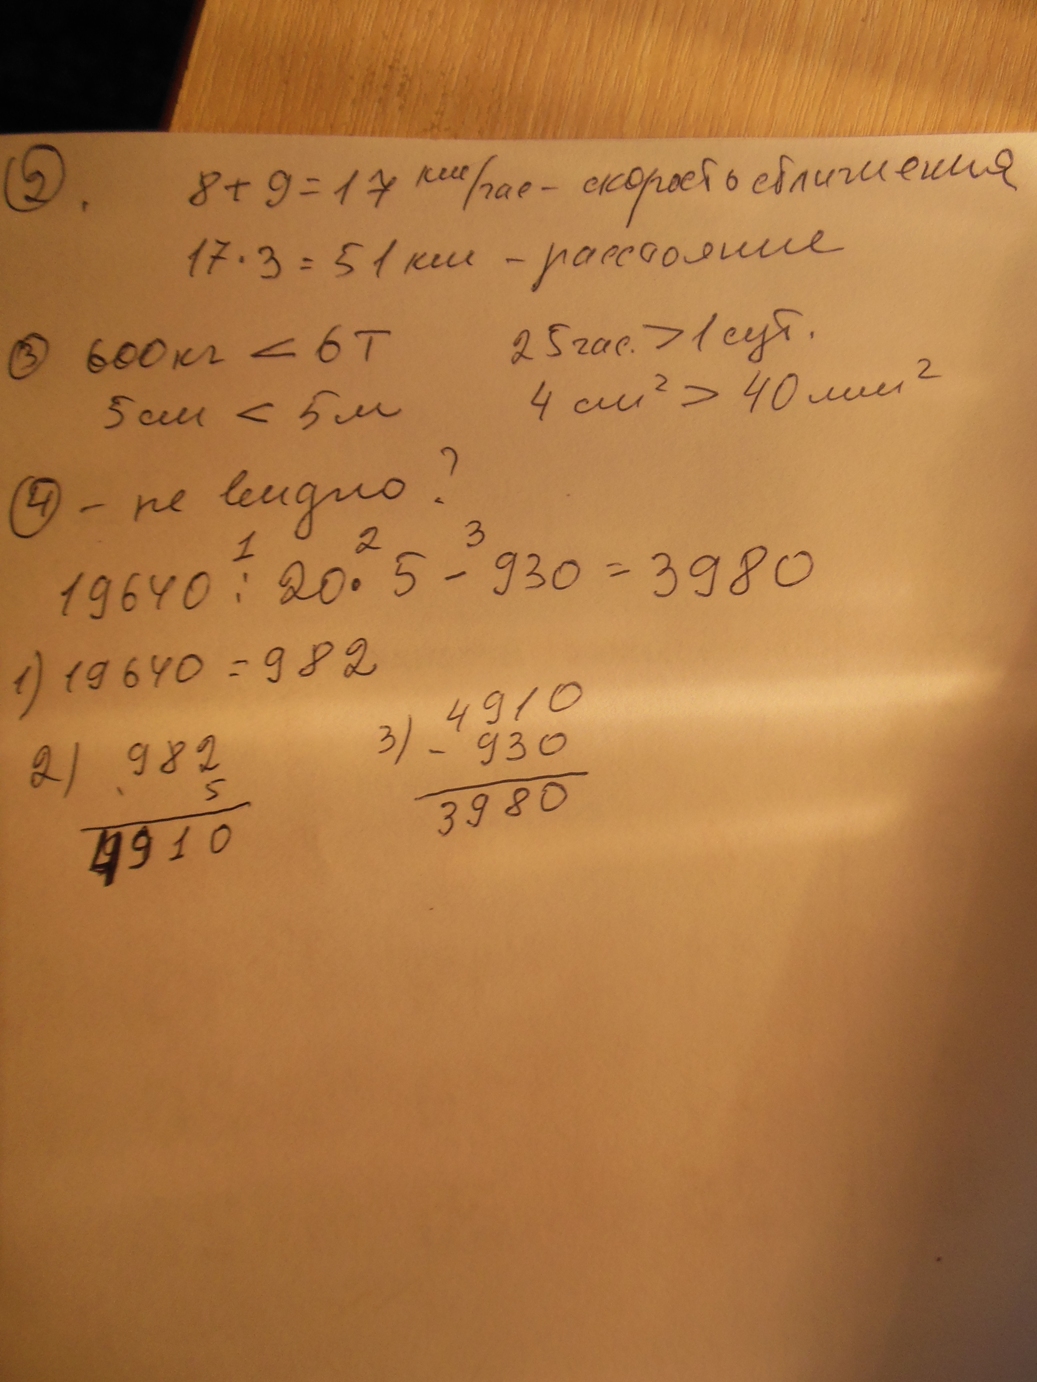 2. 8 + 9 = 17 км/час - скорость сближения
17 · 3 = 51 км - расстояние
3 600 кг < 6 Т 25 час. > 1 сут.
5 см < 5 м 4 см² > 40 мм²
4 - не видно?
1 2 3
19640 : 20 · 5 - 930 = 3980
1) 19640 = 982
2) 982 3) 4910
5 - 930
4910 3980